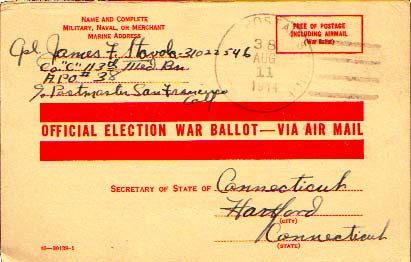 NAME AND COMPLETE
MILITARY, NAVAL, OR MERCHANT
MARINE ADDRESS
FREE OF POSTAGE
INCLUDING AIRMAIL
(War Ballot)
38
AUG
11
1944
Cpl James F. 31022546
Co "C" 113th Med Bn
APO # 38
c/o Postmaster San Francisco
Calif
OFFICIAL ELECTION WAR BALLOT—VIA AIR MAIL
SECRETARY OF STATE OF Connecticut
Hartford
(CITY)
Connecticut
(STATE)
16—39139-1